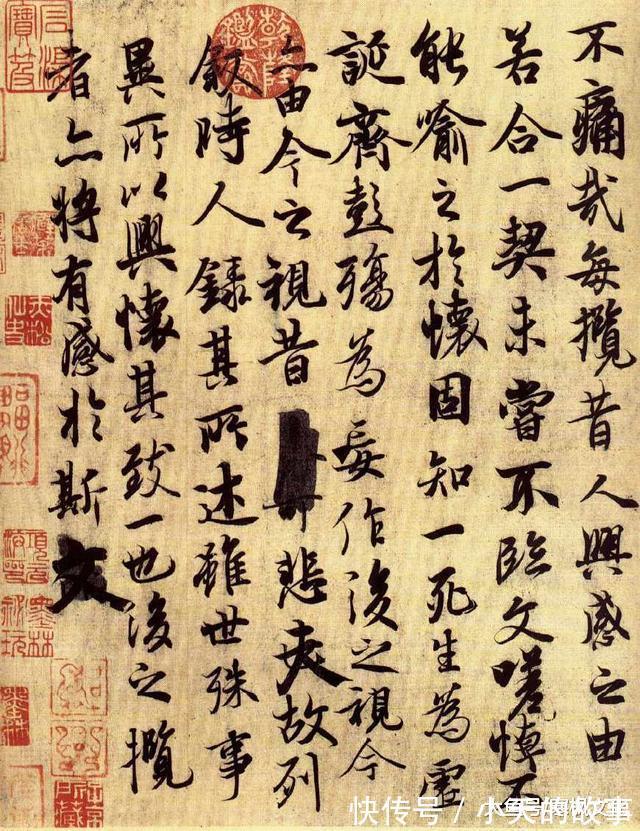 不痛哉每攬昔人興感之由
若合一契未嘗不臨文嗟悼不
能喻之於懷固知一死生為虛
誕齊彭殤為妄作後之視今
亦由今之視昔悲夫故列
敘時人錄其所述雖世殊事
異所以興懷其致一也後之攬
者亦將有感於斯文
快传号/小天的故事